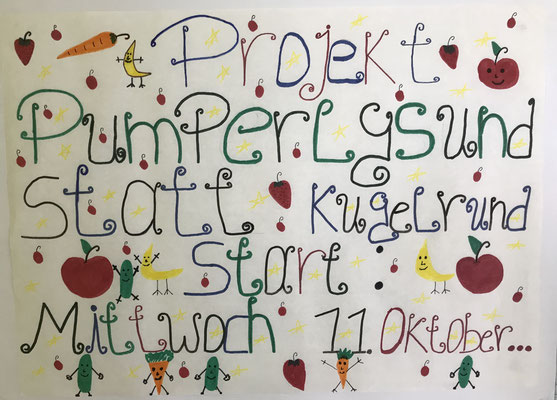 Projekt
Pumperlgsund
statt Kugelrund
Start:
Mittwoch 11. Oktober...